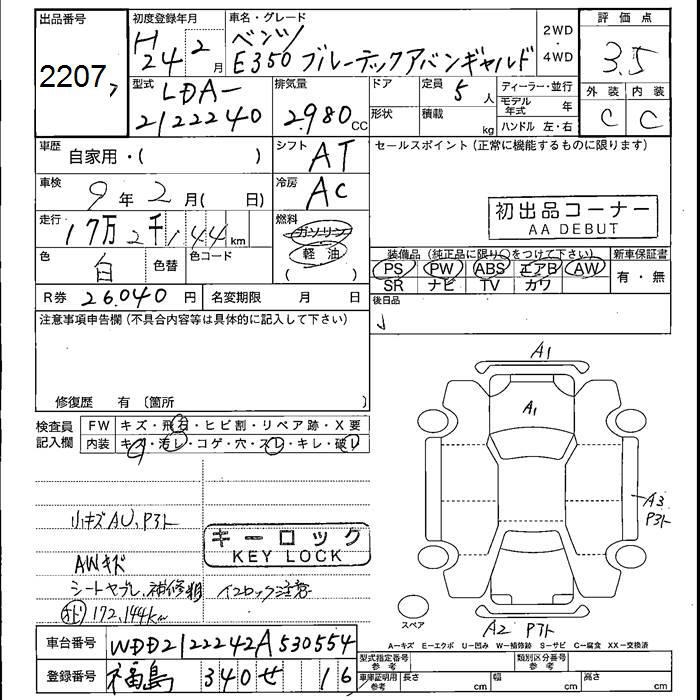 出品番号
2207
初度登録年月
H 24年 2月
車名・グレード
ベンツ
E350 ブルーテックアバンギャルド
2WD・4WD
評価点
3.5
外装 内装
C C
型式
LDA-
212224C
排気量
2980CC
ドア
形状
定員 5人
積載 kg
ディーラー・並行
モデル年式 年
ハンドル 左・右
車歴
自家用・( )
シフト
AT
セールスポイント(正常に機能するものに限ります)
車検
9年2月( 日)
冷房
AC
初出品コーナー
AA DEBUT
走行
17万2千144km
燃料
ガソリン
軽油
( )
色
白
色替
色コード
装備品(純正品に限り○をつけて下さい)
PS PW ABS エアB AW
SR ナビ TV カワ
新車保証書
有・無
R券 26,040円
名変期限 月 日
後日品
注意事項申告欄(不具合内容等は具体的に記入して下さい)
修復歴 有〔箇所 〕
検査員記入欄
FW キズ・飛石・ヒビ割・リペア跡・X要
内装 キズ・汚レ・コゲ・穴・スレ・キレ・破レ
小キズAU、Pヌト
キーロック
KEY LOCK
AWキズ
シートヤブレ、補修粗
イスロック注意
172,144km
A1
A1
A3
Pヌト
スペア
A2 Pヌト
A-キズ E-エクボ U-凹み W-補修跡 S-サビ C-腐食 XX-交換済
車台番号 WDD2122242A530554
登録番号 福島 340 せ 16
型式指定番号 参考
類別区分番号 参考
車庫証明用 参考
長さ cm
幅 cm
高さ cm